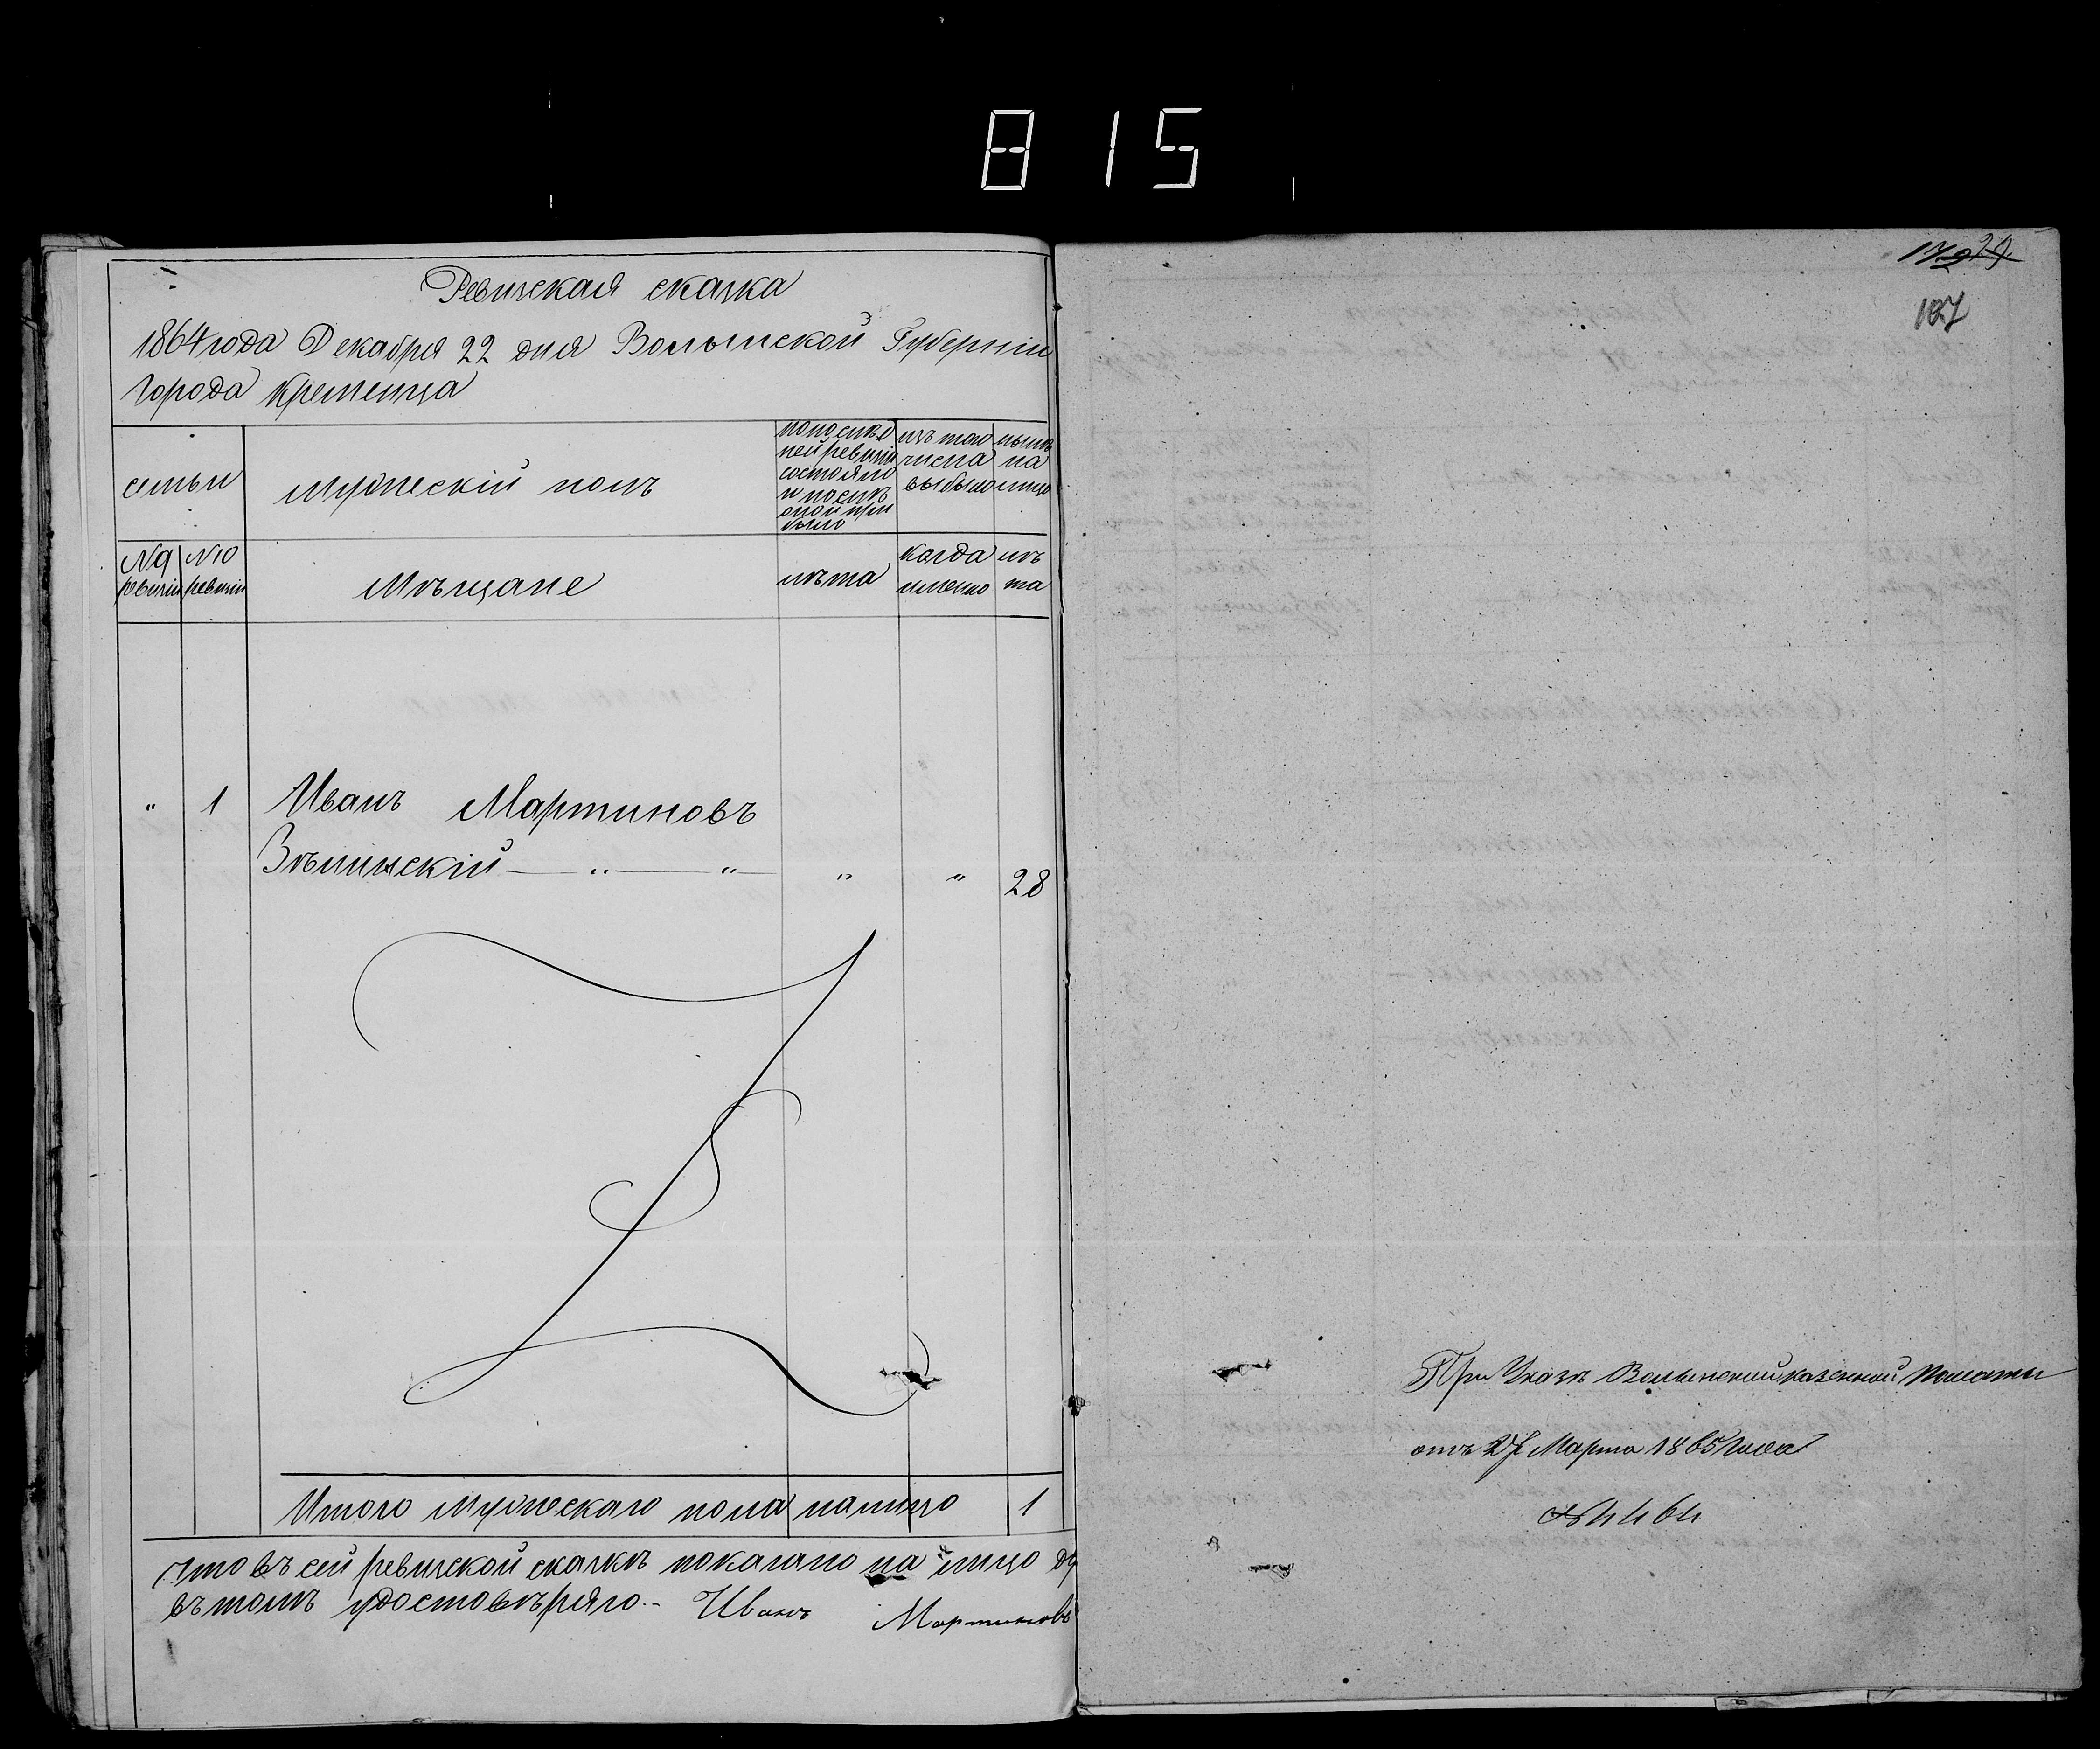 815
Ревизская сказка
1864 года Декабря 22 дня Волынской Губерніи
города Кременца
семьи
мужескій полъ
по послѣд
ней ревизіи
состояло
и послѣ
оной при
было
изъ того
числа
выбыло
нынѣ
на
лицо
№ 9
ревизіи
№ 10
ревизіи
Мѣщане
лѣта
когда
именно
лѣ
та
" 1 Иванъ Мартиновъ
" " " " 28
Итого мужескаго пола налицо 1
Что въ сей ревизской сказкѣ показано на лицо
въ томъ удостовѣряю.- Иванъ Мартиновъ
107
При Указѣ Волынской казенной Палаты
отъ 27 Марта 1865 года
№ 4464